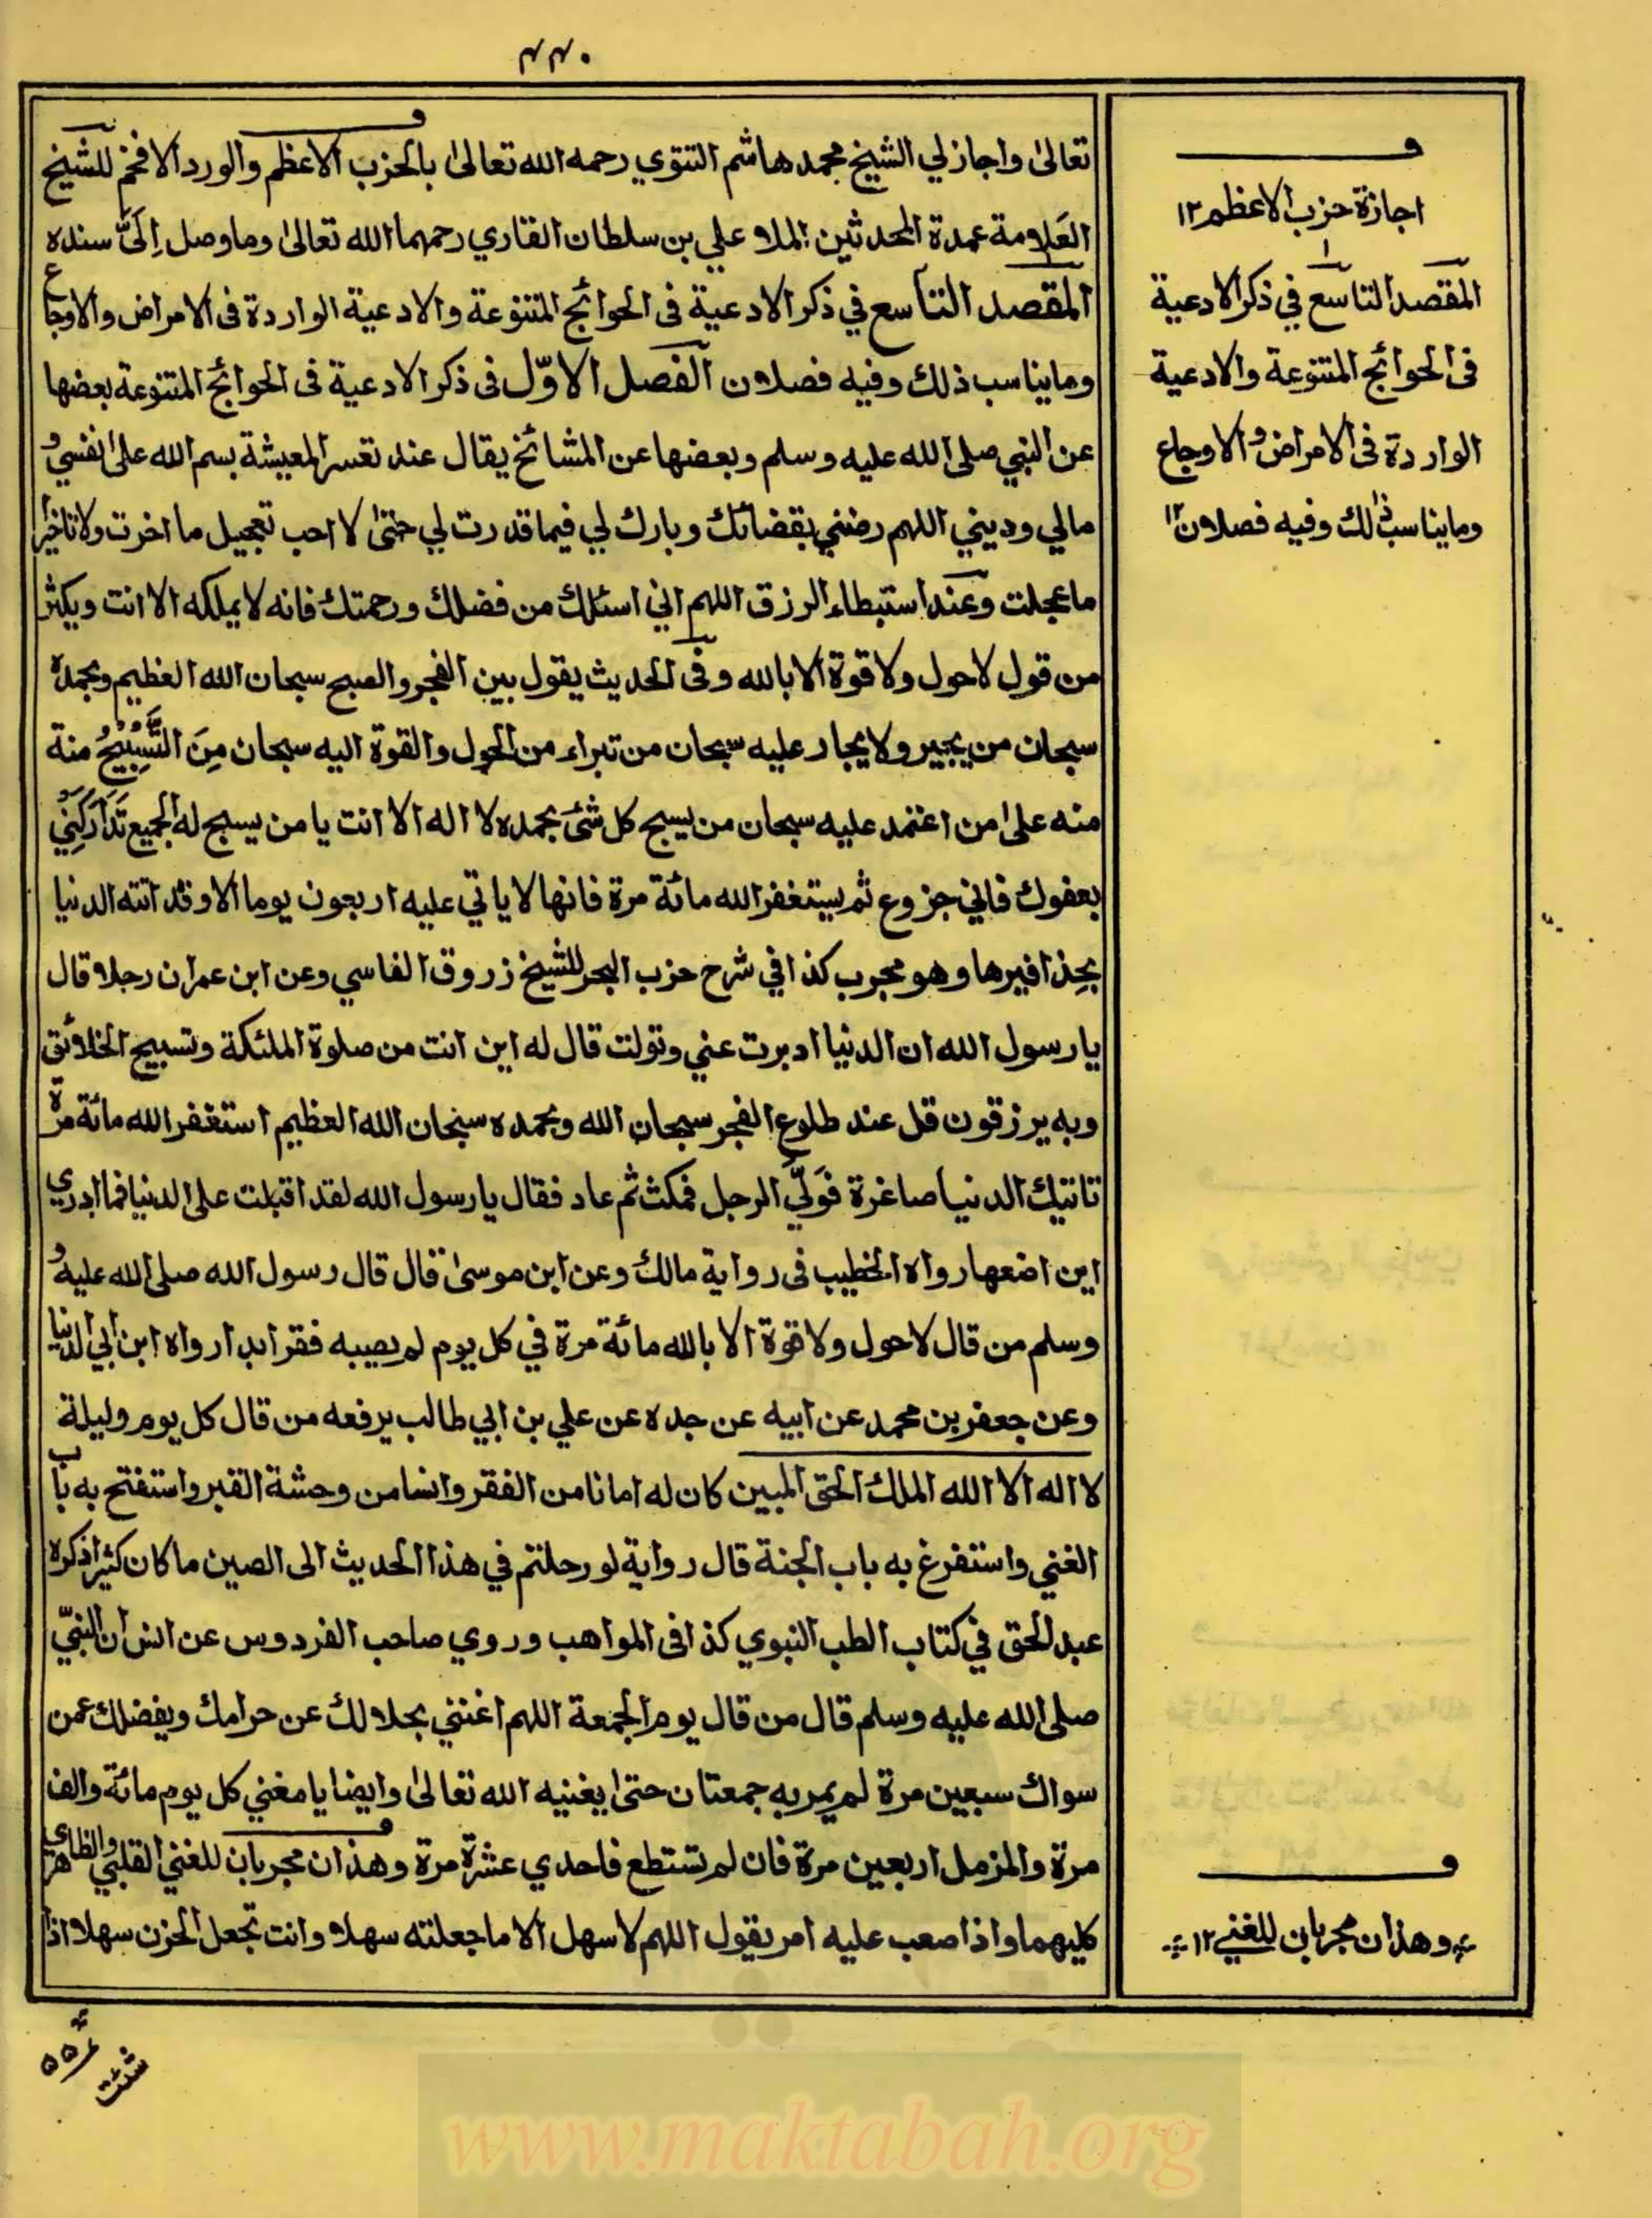 ٤٤٠
تعالیٰ واجاز لي الشيخ محمد هاشم التتوي رحمه الله تعالیٰ بالحزب الاعظم والورد الافخم للشيخ
العلامة عمدة المحدثين الملا علي بن سلطان القاري رحمهما الله تعالیٰ وما وصل اِلَیَّ سنده
المقصد التاسع في ذكر الادعية فی الحوائج المتنوعة والادعية الواردة فی الامراض والاوجاع
وما يناسب ذلك وفيه فصلان الفصل الاوّل فی ذكر الادعية فی الحوائج المتنوعة بعضها
عن النبي صلی الله عليه وسلم وبعضها عن المشائخ يقال عند تعسر المعيشة بسم الله علیٰ نفسي و
مالي وديني اللهم رضني بقضائك وبارك لي فيما قدرت لي حتیٰ لا احب تعجيل ما اخرت ولا تاخير
ما عجلت وعند استبطاء الرزق اللهم اني اسئلك من فضلك ورحمتك فانه لا يملكه الا انت ويكثر
من قول لاحول ولا قوة الا بالله وفی الحديث يقول بين الفجر والصبح سبحان الله العظيم وبحمده
سبحان من يجير ولا يجار عليه سبحان من تبراء من الحول والقوة اليه سبحان مِنَ التَّسْبِيْحُ منة
منه علیٰ من اعتمد عليه سبحان من يسبح كل شئ بحمده لا اله الا انت يا من يسبح له الجميع تَدَارَكْنِي
بعفوك فاني جزوع ثم يستغفر الله مائة مرة فانها لا ياتي عليه اربعون يوما الا وقد اتته الدنيا
بحذافيرها وهو مجرب كذا في شرح حزب البحر للشيخ زروق الفاسي وعن ابن عمر ان رجلا قال
يا رسول الله ان الدنيا ادبرت عني وتولت قال له اين انت من صلوة الملئكة وتسبيح الخلائق
وبه يرزقون قل عند طلوع الفجر سبحان الله وبحمده سبحان الله العظيم استغفر الله مائة مرة
تاتيك الدنيا صاغرة فَولّی الرجل فمكث ثم عاد فقال يا رسول الله لقد اقبلت علی الدنيا فما ادري
اين اضعها رواه الخطيب فی رواية مالك وعن ابن موسیٰ قال قال رسول الله صلی الله عليه و
وسلم من قال لاحول ولا قوة الا بالله مائة مرة في كل يوم لم يصيبه فقر ابدا رواه ابن ابي الدنيا
وعن جعفر بن محمد عن ابيه عن جده عن علي بن ابي طالب يرفعه من قال كل يوم وليلة
لا اله الا الله الملك الحق المبين كان له امانا من الفقر وانسا من وحشة القبر واستفتح به باب
الغني واستفرغ به باب الجنة قال رواية لو رحلتم في هذا الحديث الی الصين ما كان كثيرا ذكره
عبد الحق في كتاب الطب النبوي كذا فی المواهب وروي صاحب الفردوس عن انس ان النبيّ
صلی الله عليه وسلم قال من قال يوم الجمعة اللهم اغنني بحلالك عن حرامك وبفضلك عمن
سواك سبعين مرة لم يمر به جمعتان حتیٰ يغنيه الله تعالیٰ وايضا يا مغني كل يوم مائة والف
مرة والمزمل اربعين مرة فان لم تستطع فاحدي عشرة مرة وهذان مجربان للغني القلبي والظاهري
كليهما واذا صعب عليه امر يقول اللهم لاسهل الا ما جعلته سهلا وانت تجعل الحزن سهلا اذا
شئت
اجازة حزب الاعظم ١٢
المقصد التاسع في ذكر الادعية
فی الحوائج المتنوعة والادعية
الواردة فی الامراض والاوجاع
وما يناسب ذلك وفيه فصلان ١٢
وهذان مجربان للغني ١٢
www.maktabah.org